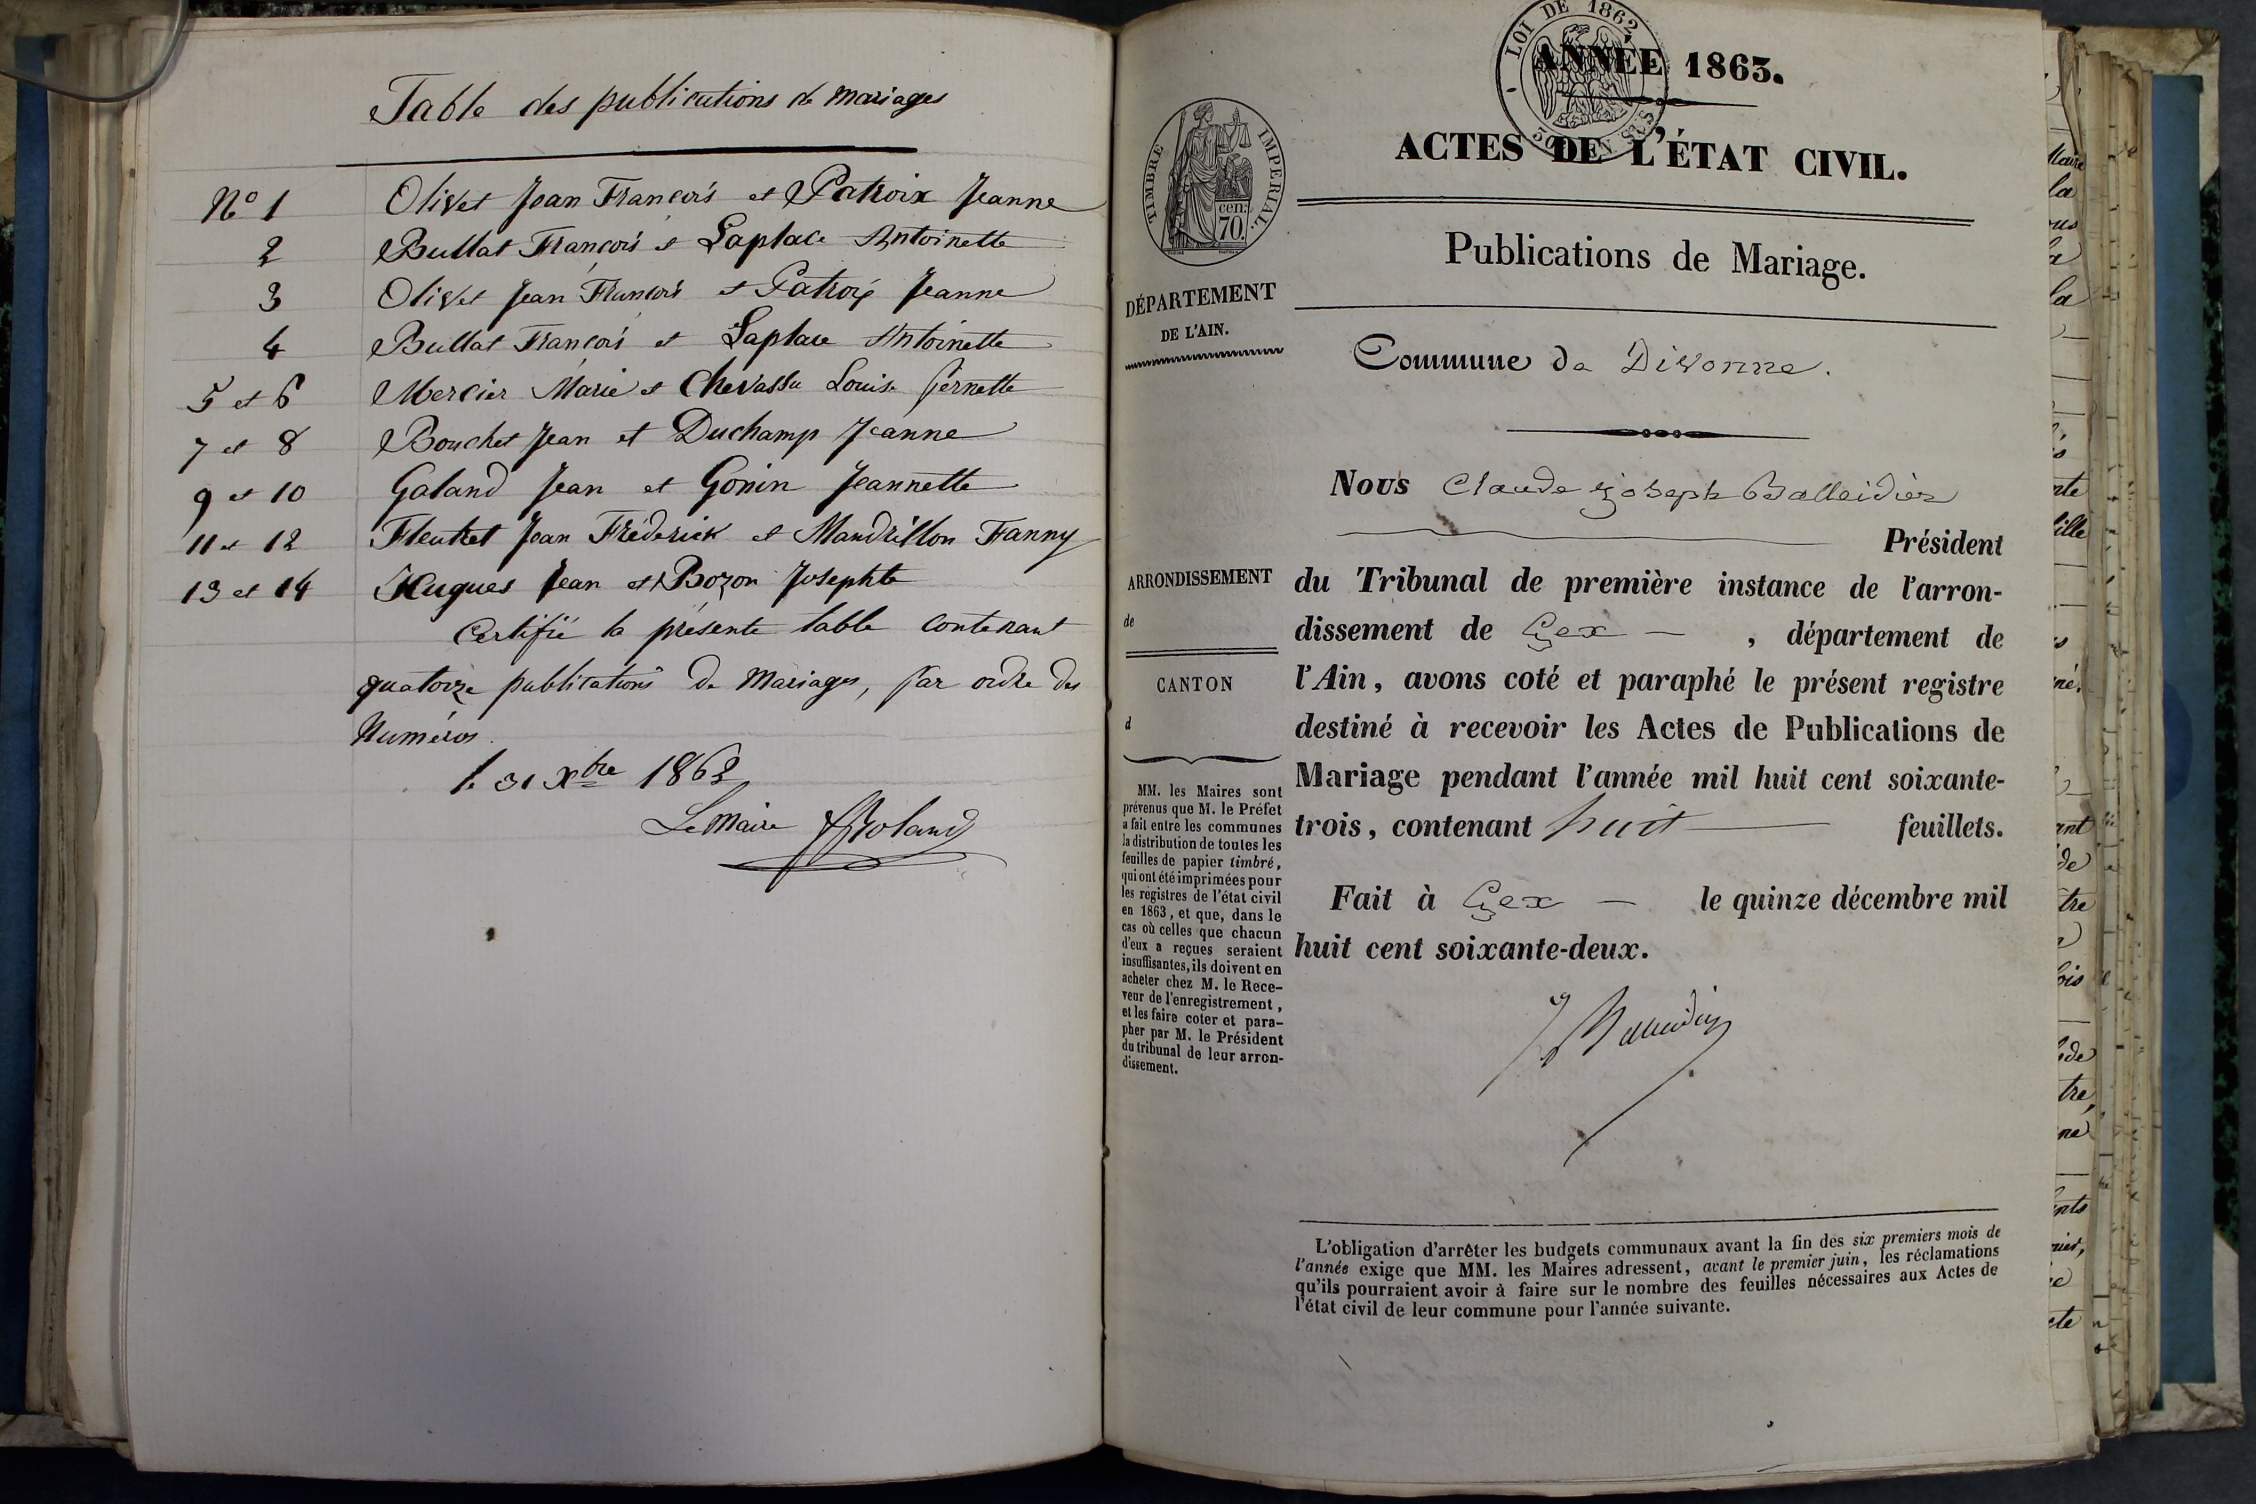 Table des publications de mariages
N° 1 Olivet Jean François et Patroix Jeanne
2 Bullat François et Laplace Antoinette
3 Olivet Jean François et Patroix Jeanne
4 Bullat François et Laplace Antoinette
5 et 6 Mercier Marie et Chevassu Louise Pernette
7 et 8 Bouchet Jean et Duchamp Jeanne
9 et 10 Galand Jean et Gonin Jeannette
11 et 12 Fleutret Jean Fréderick et Mandrillon Fanny
13 et 14 Hugues Jean et Bozon Josephte
Certifié la présente table contenant
quatorze publications de Mariages, par ordre des
Numéros.
le 31 Xbre 1862
Le Maire Roland
LOI DE 1862
ANNÉE 1863.
ACTES DE L'ÉTAT CIVIL.
Publications de Mariage.
Commune de Divonne.
TIMBRE IMPERIAL.
cen.
70.
DÉPARTEMENT
DE L'AIN.
ARRONDISSEMENT
de
CANTON
d
MM. les Maires sont
prévenus que M. le Préfet
a fait entre les communes
la distribution de toutes les
feuilles de papier timbré,
qui ont été imprimées pour
les registres de l'état civil
en 1863, et que, dans le
cas où celles que chacun
d'eux a reçues seraient
insuffisantes, ils doivent en
acheter chez M. le Rece-
veur de l'enregistrement,
et les faire coter et para-
pher par M. le Président
du tribunal de leur arron-
dissement.
Nous Claude Joseph Balleidier
Président
du Tribunal de première instance de l'arron-
dissement de Gex — , département de
l'Ain, avons coté et paraphé le présent registre
destiné à recevoir les Actes de Publications de
Mariage pendant l'année mil huit cent soixante-
trois, contenant huit feuillets.
Fait à Gex — le quinze décembre mil
huit cent soixante-deux.
J Balleidier
L'obligation d'arrêter les budgets communaux avant la fin des six premiers mois de
l'année exige que MM. les Maires adressent, avant le premier juin, les réclamations
qu'ils pourraient avoir à faire sur le nombre des feuilles nécessaires aux Actes de
l'état civil de leur commune pour l'année suivante.